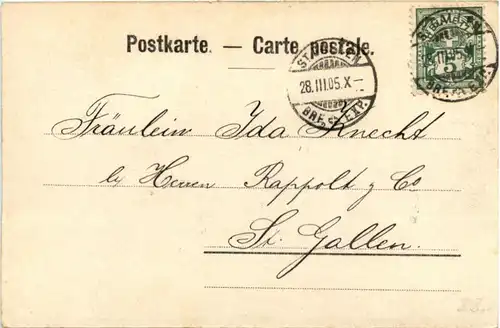 Postkarte. — Carte postale.
ST. GALLEN
28.III.05.X–
BRF. EXP.
5
Fräulein Ida Knecht
bei Herren Rappolt & Co
St. Gallen.